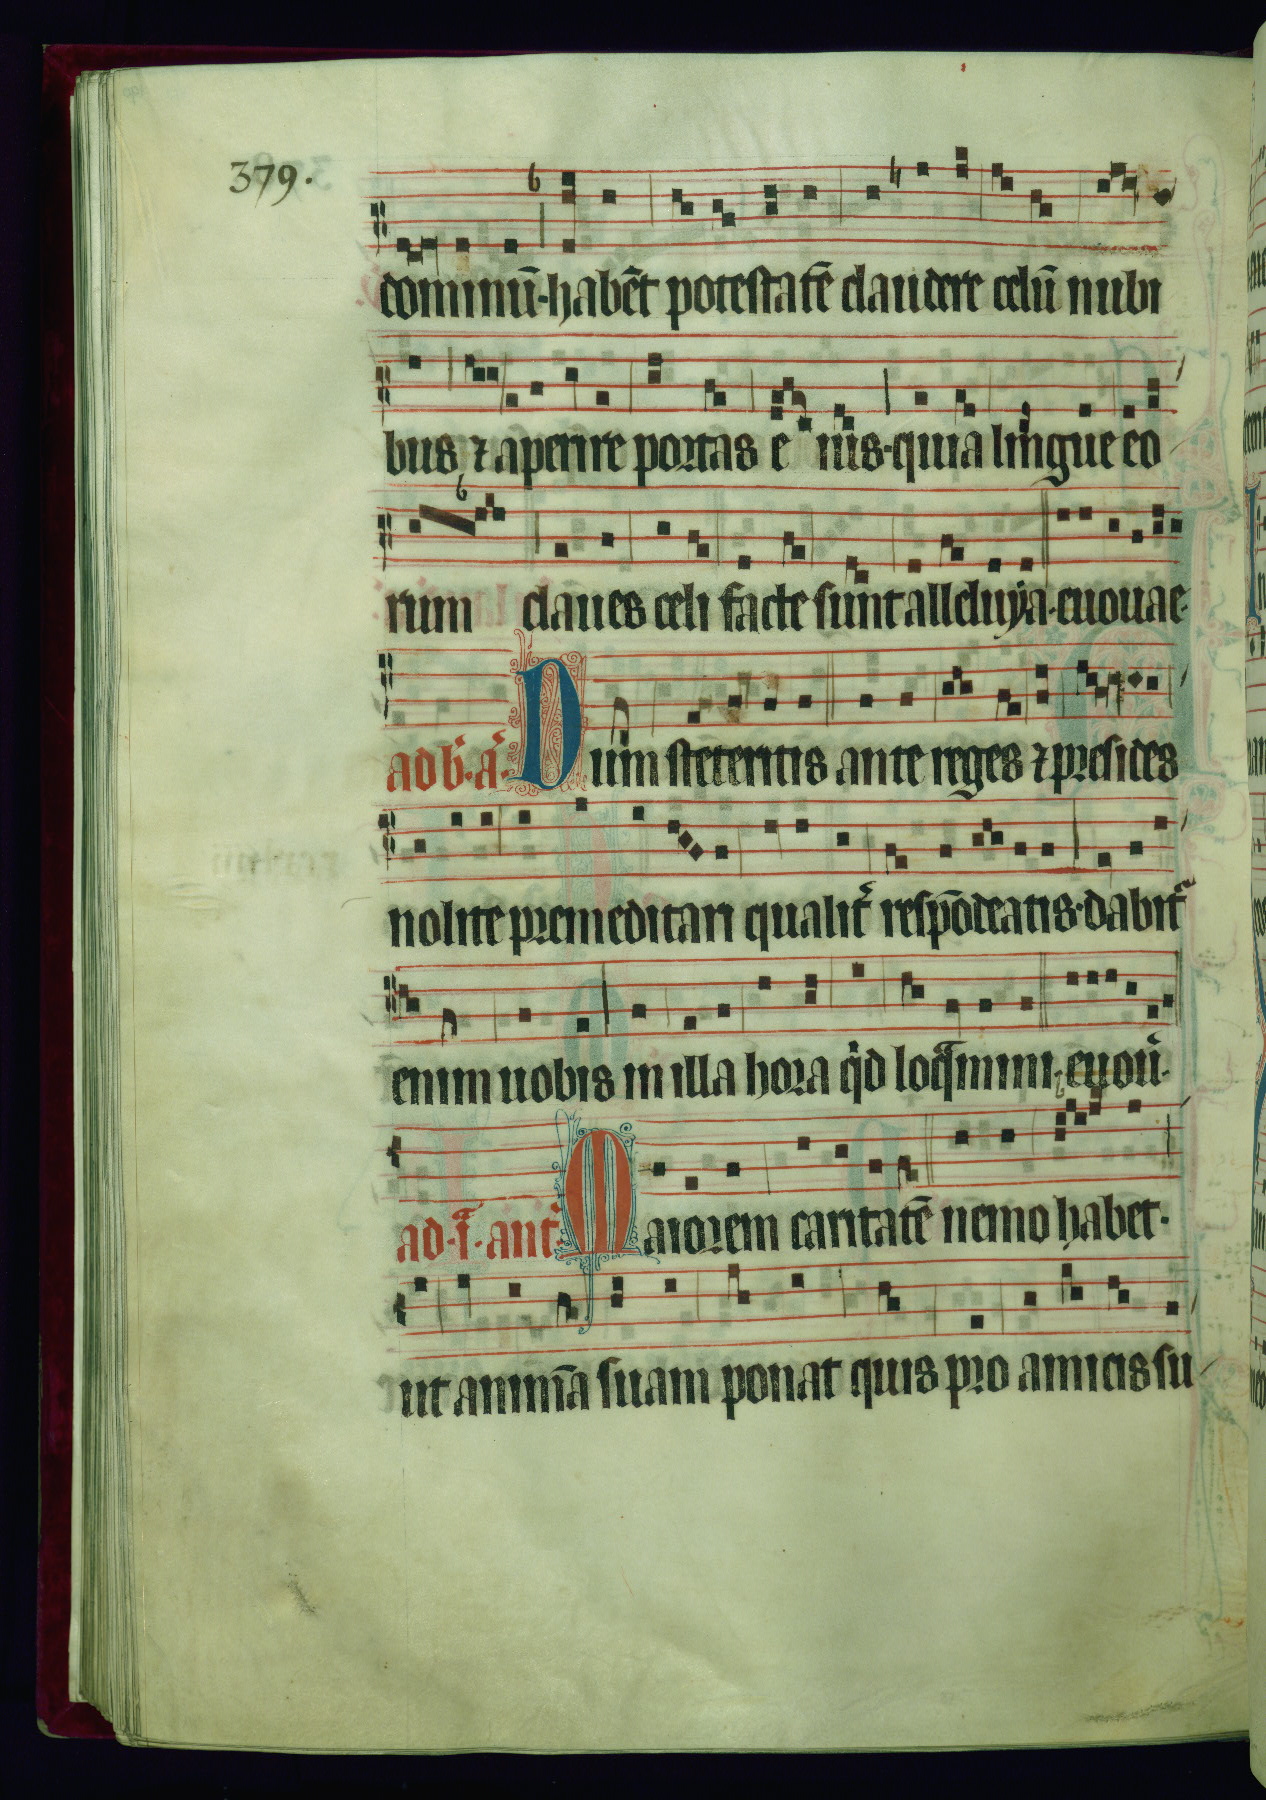 379.
dominū·habēt potestatē claudere celū nubi
bus ⁊ aperire portas eius·quia lingue eo
rum claues celi facte sunt alleluya·euouae·
ad b̄·aᷓ· Dum steteritis ante reges ⁊ presides
nolite premeditari qualit᷑ respōdeatis·dabit᷑
enim uobis in illa hora qͥd loqᷓmini·euou͛·
ad·iᷓ·ant᷑· Maiorem caritatē nemo habet·
ut animā suam ponat quis pro amicis su